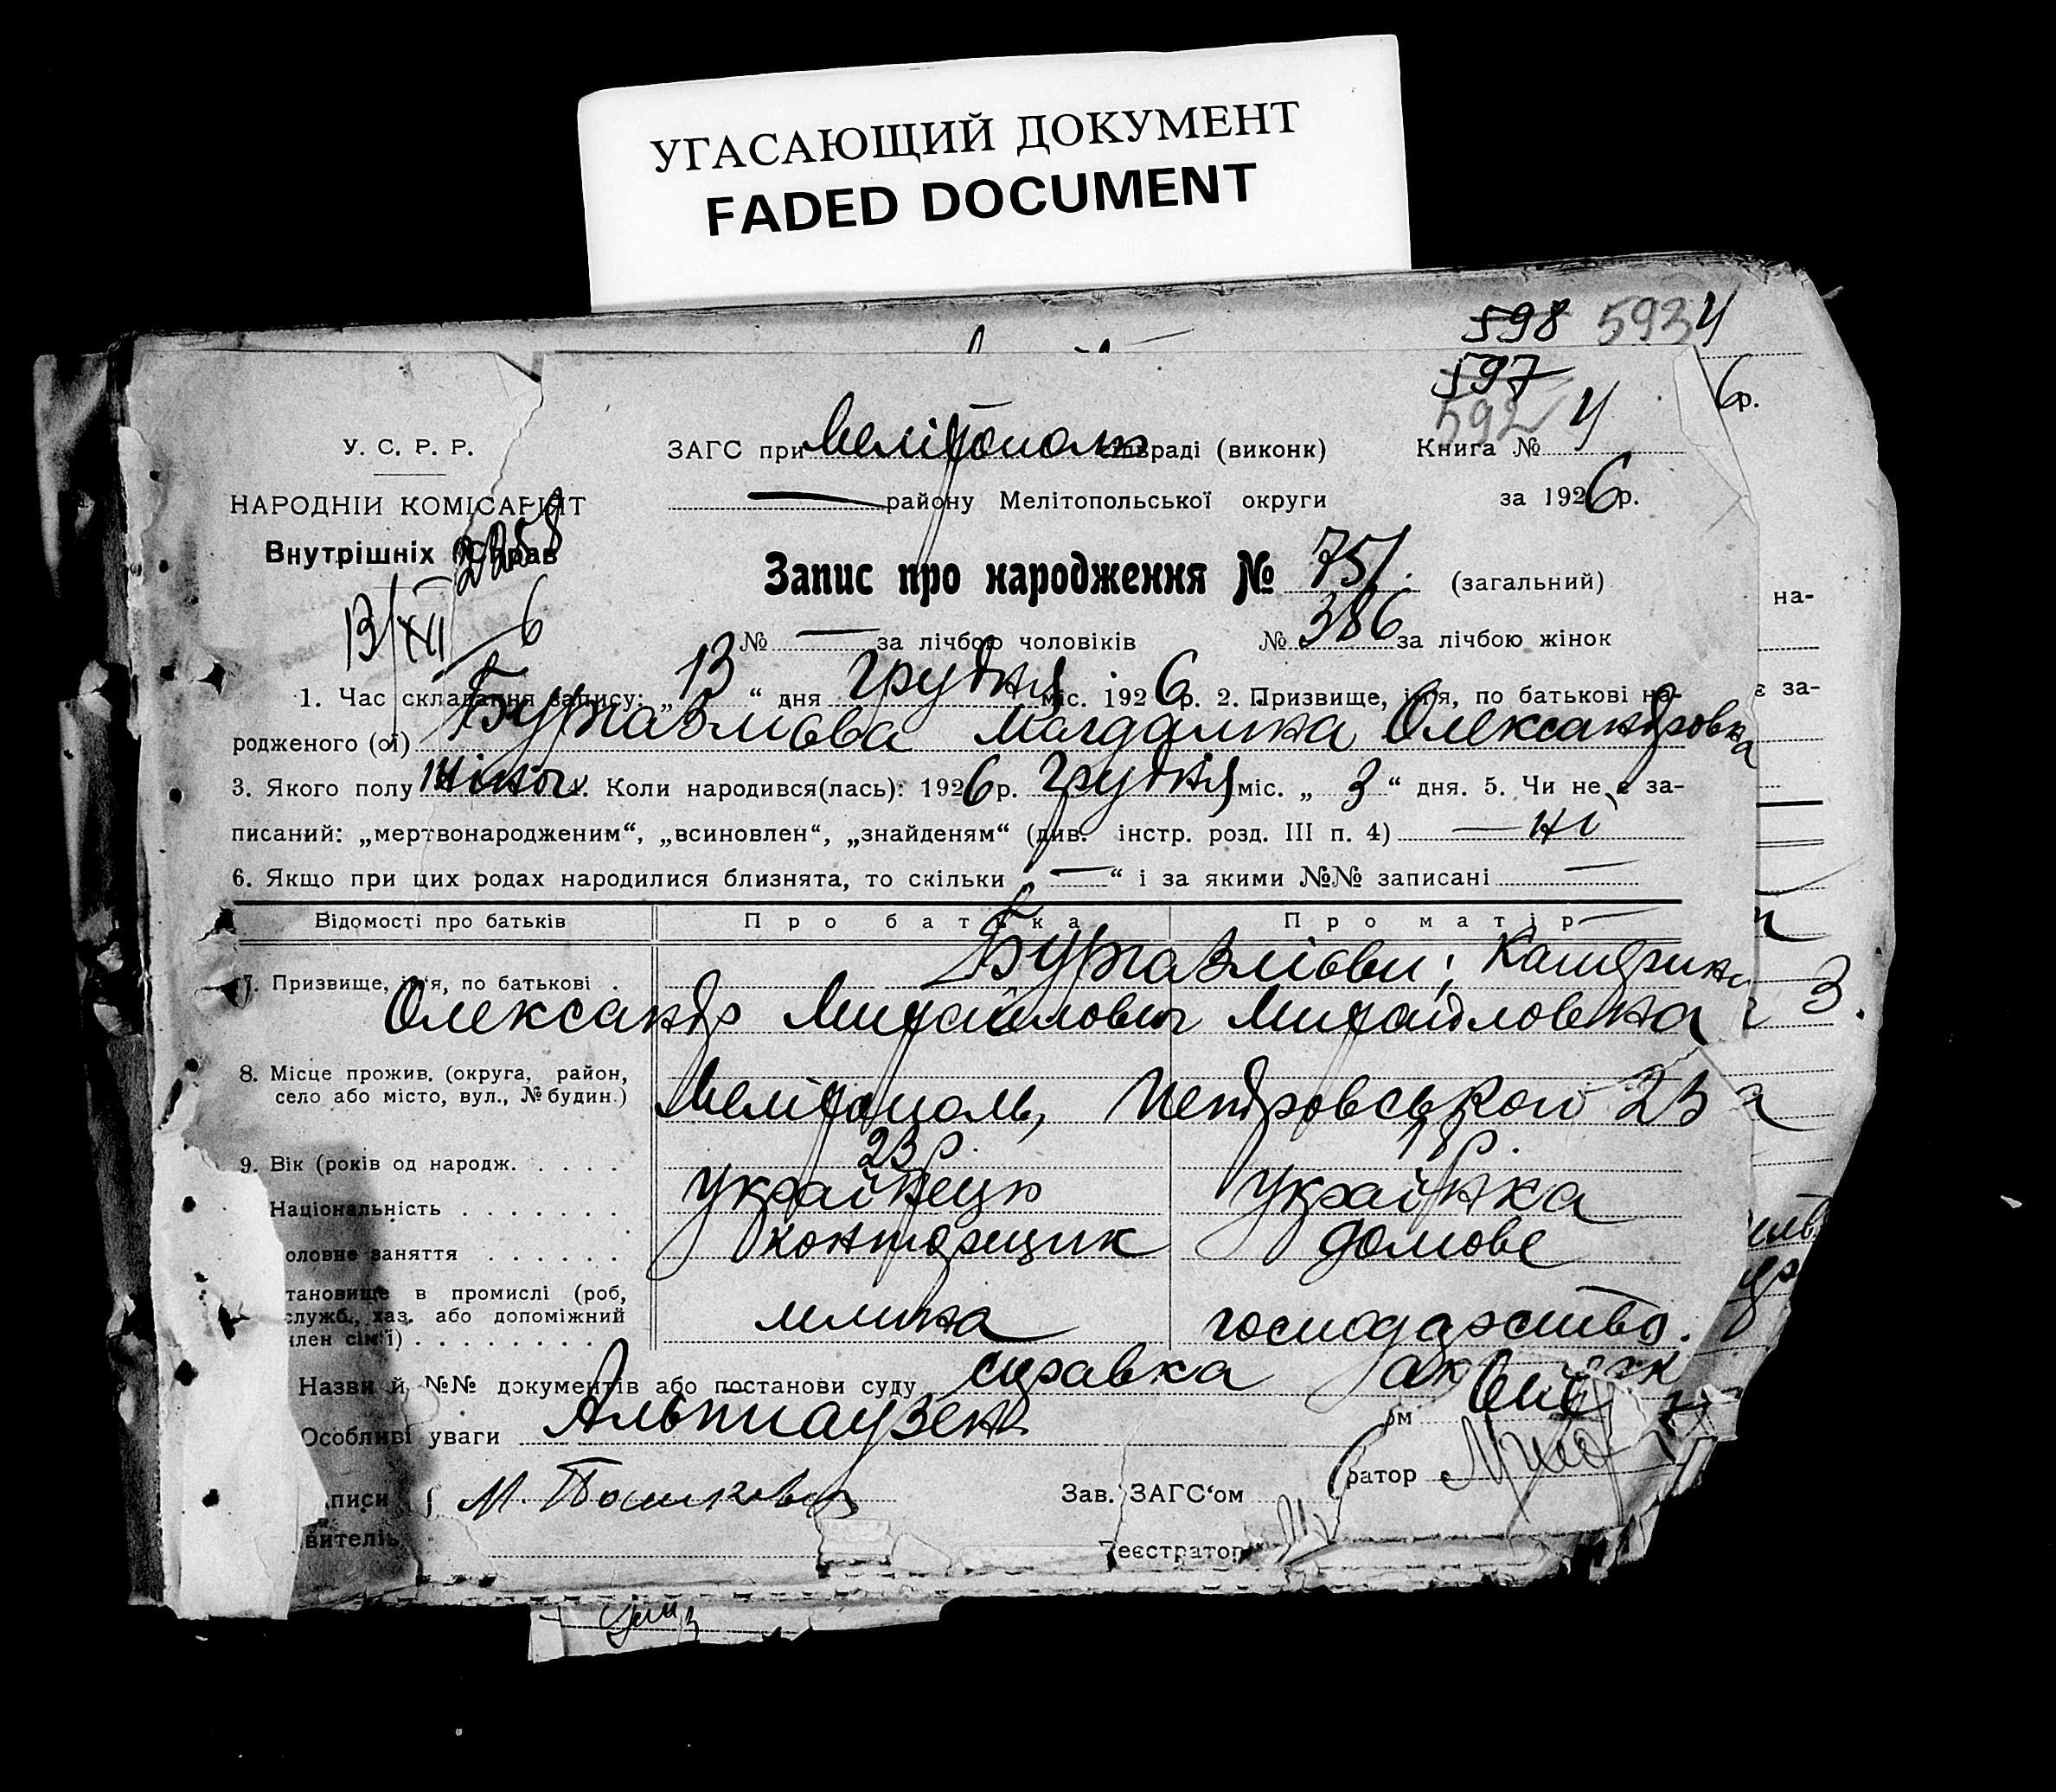 УГАСАЮЩИЙ ДОКУМЕНТ
FADED DOCUMENT
598 593 4
597
592 4 6р.
У. С. Р. Р.
ЗАГС при Мелітополь міськраді (виконк) Книга №
НАРОДНІЙ КОМІСАРІЯТ
— району Мелітопольської округи за 1926 р.
Внутрішніх Справ
Запис про народження № 751. (загальний)
13/XII 6
№ — за лічбою чоловіків № 386 за лічбою жінок
1. Час складання запису: „13“ дня Грудня міс. 1926 р. 2. Призвище, ім'я, по батькові на-
родженого (ої) Магдалина Олександровна
3. Якого полу жіноч. 4. Коли народився(лась): 1926 р. Грудня міс. „3“ дня. 5. Чи не є за-
писаний: „мертвонародженим“, „всиновлен“, „знайденям“ (див. інстр. розд. III п. 4) — ні
6. Якщо при цих родах народилися близнята, то скільки „—“ і за якими №№ записані —
Відомості про батьків Про батька Про матір
7. Призвище, ім'я, по батькові
Олександр Михайлович Михайловна
8. Місце прожив. (округа, район,
село або місто, вул., № будин.) Мелітополь, Петровського 23
9. Вік (років од народж. 23 р. 18 р.
Національність українець українка
оловне заняття конторщик домове
тановище в промислі (роб,
служб., хаз. або допоміжний
член сім'ї) млина господарство.
Назви й №№ документів або постанови суду справка
Особливі уваги Альтгаузен ом
ратор
писи М. Зав. ЗАГС'ом
вителів
Реєстратор
на-
є за-
3.